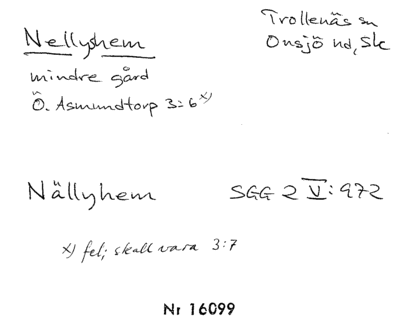 Nellyshem
Trollenäs sn
Onsjö hd, Sk
mindre gård
Ö. Asmundtorp 3:6 x)
Nällyhem SGG 2 V: 972
x) fel; skall vara 3:7
Nr 16099